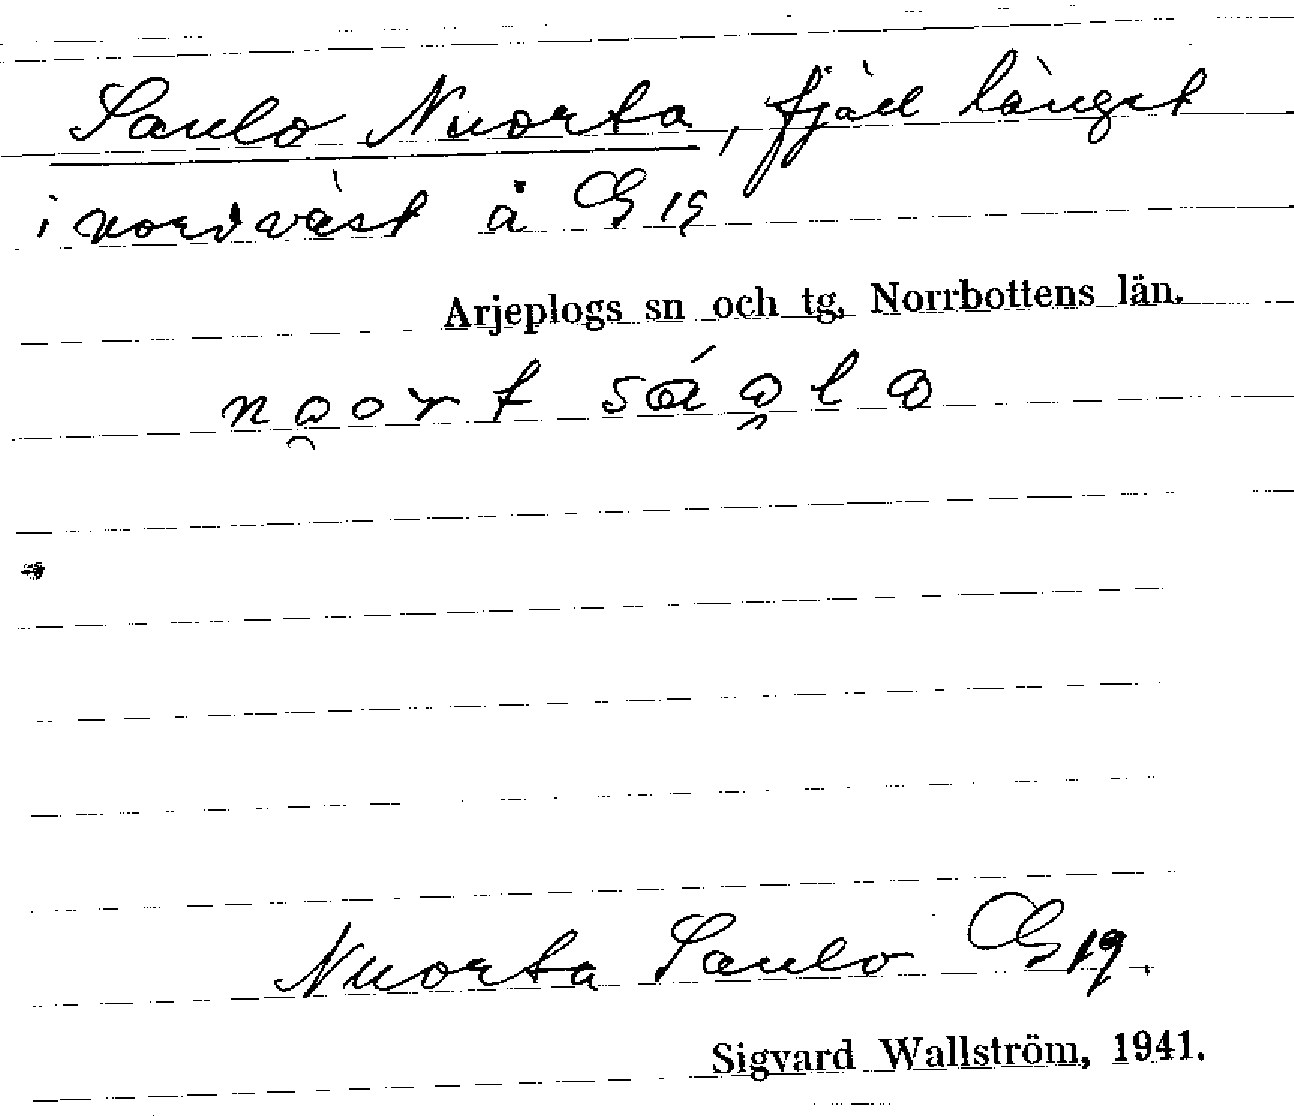 Saulo Nuorta, fjäll längst
i nordväst å G 19
Arjeplogs sn och tg, Norrbottens län.
Nuorta Saulo G 19.
Sigvard Wallström, 1941.